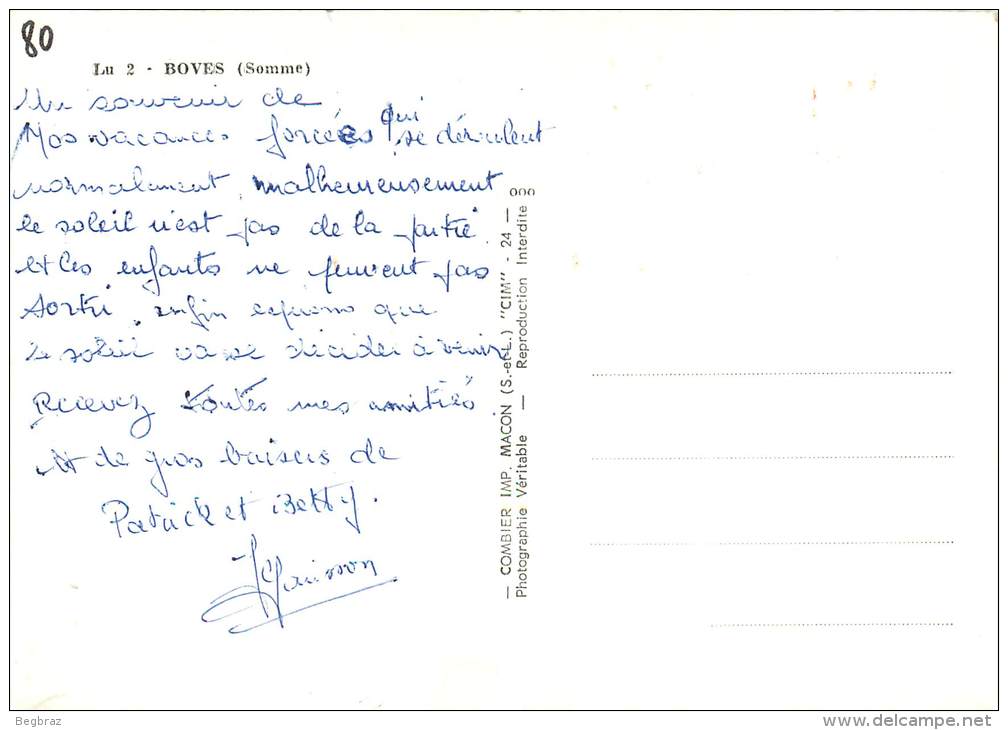 80
Lu 2 - BOVES (Somme)
Un souvenir de
Nos vacances forcées qui se déroulent
normalement, malheureusement
le soleil n'est pas de la partie.
et les enfants ne peuvent pas
sortir, enfin espérons que
le soleil va se décider à venir
Recevez toutes mes amitiés.
et de gros baisers de
Patrick et Betty.
— COMBIER IMP. MACON (S.-et-L.) "CIM" - 24 — ooo
Photographie Véritable — Reproduction Interdite
Begbraz
www.delcampe.net